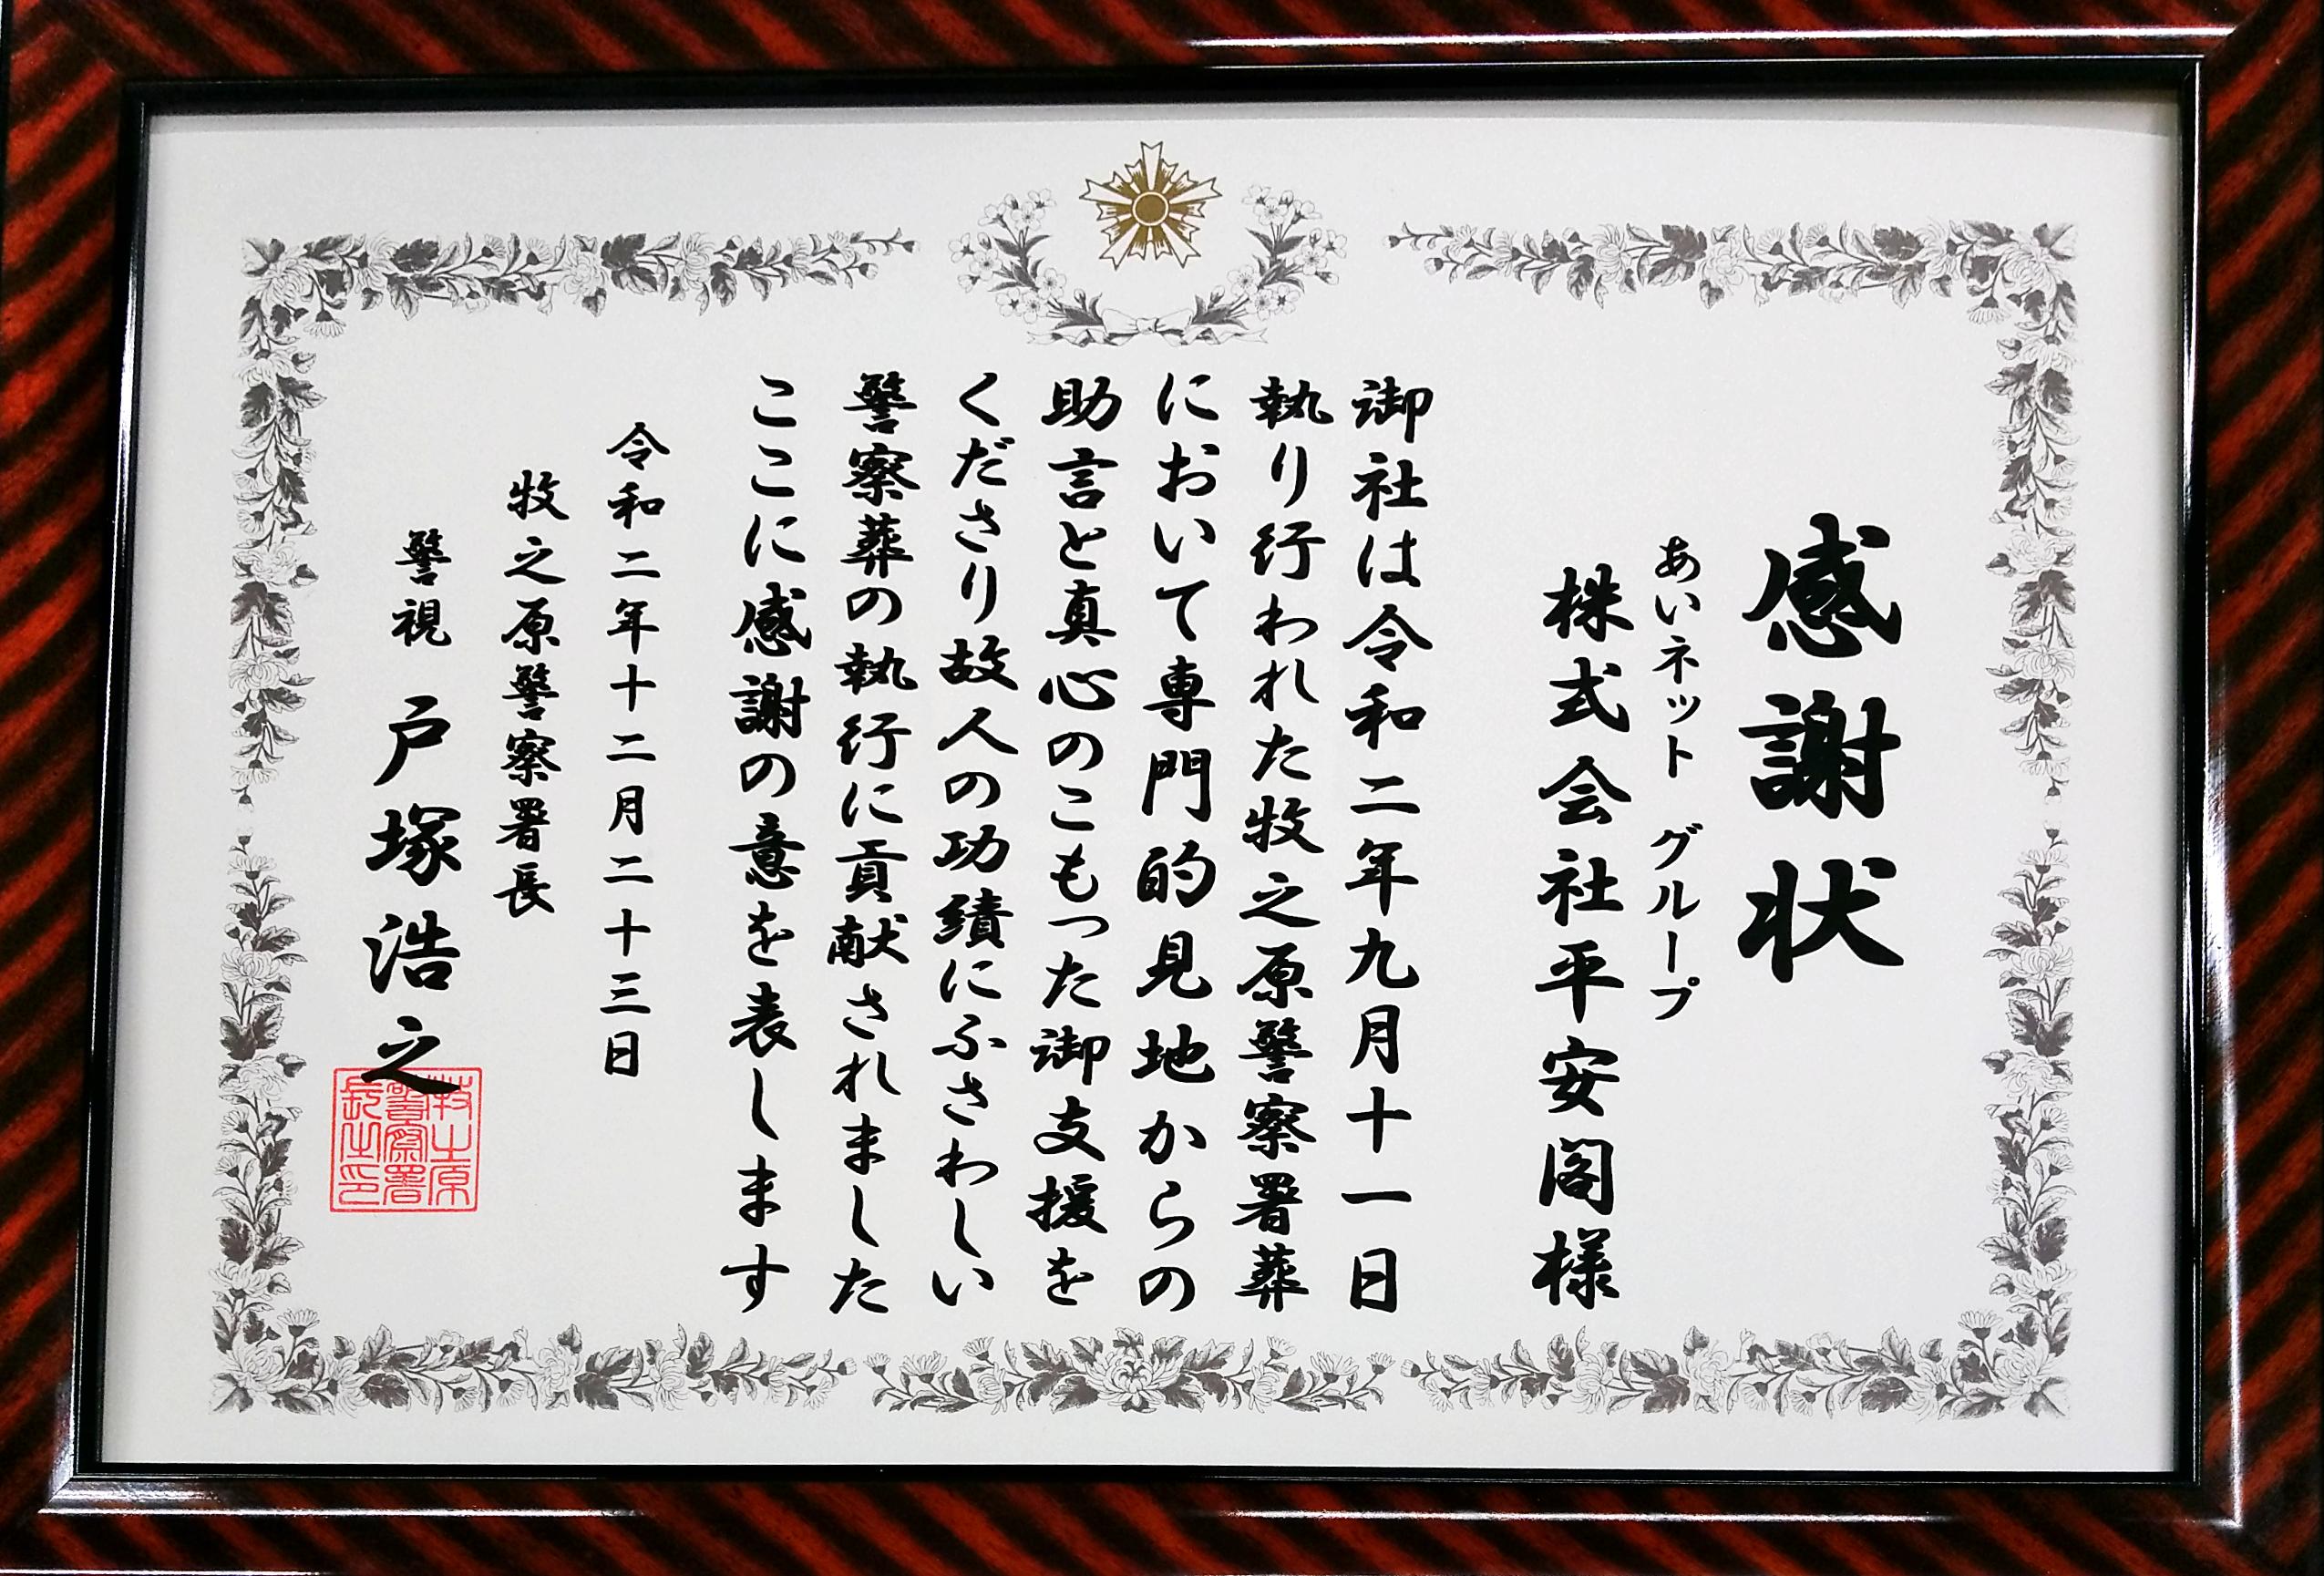 感謝状
あいネットグループ
株式会社平安閣様
御社は令和二年九月十一日
執り行われた牧之原警察署葬
において専門的見地からの
助言と真心のこもった御支援を
くださり故人の功績にふさわしい
警察葬の執行に貢献されました
ここに感謝の意を表します
令和二年十二月二十三日
牧之原警察署長
警視 戸塚浩之
牧之原
警察署
長之印